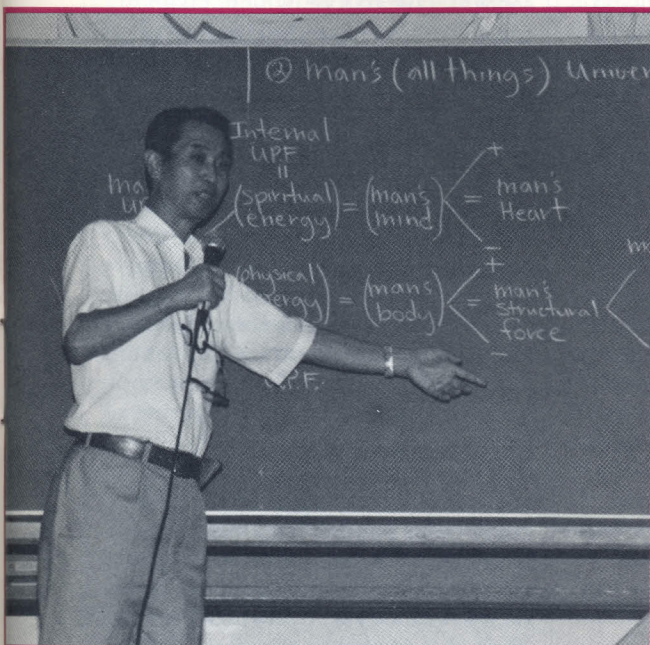 ② man's (all things) Univer
Internal
UPF
=
(spiritual energy) = (man's mind) + - = man's Heart
(physical = (man's body) + - = man's structural force
U.P.F.